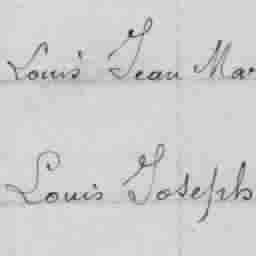 Louis Jean Mar
Louis Joseph